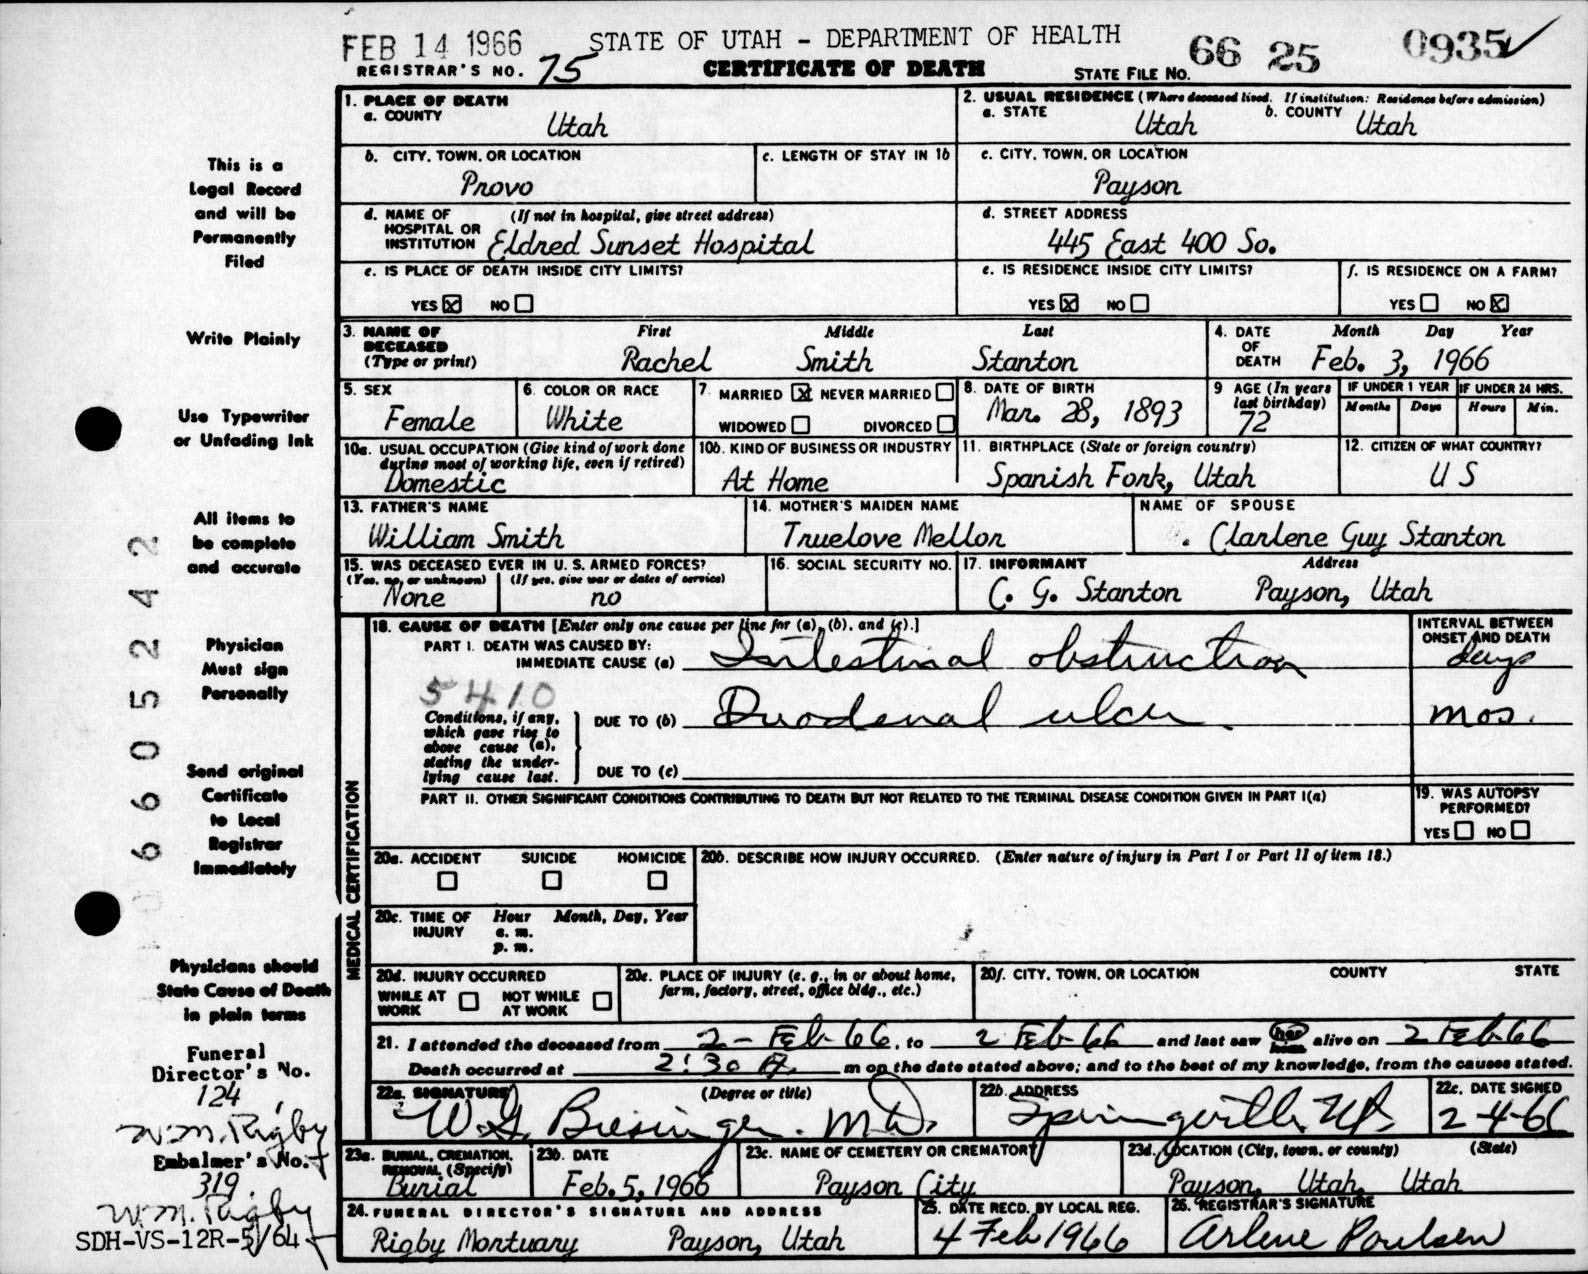 FEB 14 1966
STATE OF UTAH - DEPARTMENT OF HEALTH
66 25 0935
REGISTRAR'S NO. 75
CERTIFICATE OF DEATH
STATE FILE NO.
This is a
Legal Record
and will be
Permanently
Filed
Write Plainly
Use Typewriter
or Unfading Ink
All items to
be complete
and accurate
Physician
Must sign
Personally
Send original
Certificate
to Local
Registrar
Immediately
Physicians should
State Cause of Death
in plain terms
Funeral
Director's No.
124
W.M. Rigby
Embalmer's No.
319
W.M. Rigby
SDH-VS-12R-5/64
0660525242
1. PLACE OF DEATH
a. COUNTY
Utah
2. USUAL RESIDENCE (Where deceased lived. If institution: Residence before admission)
a. STATE Utah b. COUNTY Utah
b. CITY, TOWN, OR LOCATION
Provo
c. LENGTH OF STAY IN 1b
c. CITY, TOWN, OR LOCATION
Payson
d. NAME OF HOSPITAL OR INSTITUTION (If not in hospital, give street address)
Eldred Sunset Hospital
d. STREET ADDRESS
445 East 400 So.
e. IS PLACE OF DEATH INSIDE CITY LIMITS?
YES X NO
e. IS RESIDENCE INSIDE CITY LIMITS?
YES X NO
f. IS RESIDENCE ON A FARM?
YES NO X
3. NAME OF DECEASED (Type or print)
First Middle Last
Rachel Smith Stanton
4. DATE OF DEATH
Month Day Year
Feb. 3, 1966
5. SEX
Female
6. COLOR OR RACE
White
7. MARRIED X NEVER MARRIED
WIDOWED DIVORCED
8. DATE OF BIRTH
Mar. 28, 1893
9 AGE (In years last birthday)
72
IF UNDER 1 YEAR
Months Days
IF UNDER 24 HRS.
Hours Min.
10a. USUAL OCCUPATION (Give kind of work done during most of working life, even if retired)
Domestic
10b. KIND OF BUSINESS OR INDUSTRY
At Home
11. BIRTHPLACE (State or foreign country)
Spanish Fork, Utah
12. CITIZEN OF WHAT COUNTRY?
U S
13. FATHER'S NAME
William Smith
14. MOTHER'S MAIDEN NAME
Truelove Mellor
NAME OF SPOUSE
Clarlene Guy Stanton
15. WAS DECEASED EVER IN U. S. ARMED FORCES?
(Yes, no, or unknown) (If yes, give war or dates of service)
None no
16. SOCIAL SECURITY NO.
17. INFORMANT Address
C. G. Stanton Payson, Utah
MEDICAL CERTIFICATION
18. CAUSE OF DEATH [Enter only one cause per line for (a), (b), and (c).]
INTERVAL BETWEEN ONSET AND DEATH
PART I. DEATH WAS CAUSED BY:
IMMEDIATE CAUSE (a) Intestinal obstruction days
5410
Conditions, if any, which gave rise to above cause (a), stating the underlying cause last.
DUE TO (b) Duodenal ulcer mos.
DUE TO (c)
PART II. OTHER SIGNIFICANT CONDITIONS CONTRIBUTING TO DEATH BUT NOT RELATED TO THE TERMINAL DISEASE CONDITION GIVEN IN PART I(a)
19. WAS AUTOPSY PERFORMED?
YES NO
20a. ACCIDENT SUICIDE HOMICIDE
20b. DESCRIBE HOW INJURY OCCURRED. (Enter nature of injury in Part I or Part II of item 18.)
20c. TIME OF INJURY Hour Month, Day, Year
a. m.
p. m.
20d. INJURY OCCURRED
WHILE AT WORK NOT WHILE AT WORK
20e. PLACE OF INJURY (e. g., in or about home, farm, factory, street, office bldg., etc.)
20f. CITY, TOWN, OR LOCATION COUNTY STATE
21. I attended the deceased from 2 - Feb 66, to 2 Feb 66 and last saw her alive on 2 Feb 66
Death occurred at 2:30 A. m on the date stated above; and to the best of my knowledge, from the causes stated.
22a. SIGNATURE (Degree or title)
W. G. Biesinger. M.D.
22b. ADDRESS
Springville Ut.
22c. DATE SIGNED
2-4-66
23a. BURIAL, CREMATION, REMOVAL (Specify)
Burial
23b. DATE
Feb. 5, 1966
23c. NAME OF CEMETERY OR CREMATORY
Payson City
23d. LOCATION (City, town, or county) (State)
Payson, Utah, Utah
24. FUNERAL DIRECTOR'S SIGNATURE AND ADDRESS
Rigby Mortuary Payson, Utah
25. DATE RECD. BY LOCAL REG.
4 Feb 1966
26. REGISTRAR'S SIGNATURE
Arlene Poulsen